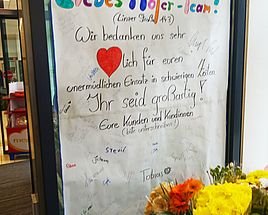 Liebes Hofer-Team!
(Linzer Straße 143)
Wir bedanken uns sehr
lich für euren
unermüdlichen Einsatz in schwierigen Zeiten
Ihr seid großartig!
Eure Kunden und Kundinnen
(bitte unterschreiben!)
Tobias